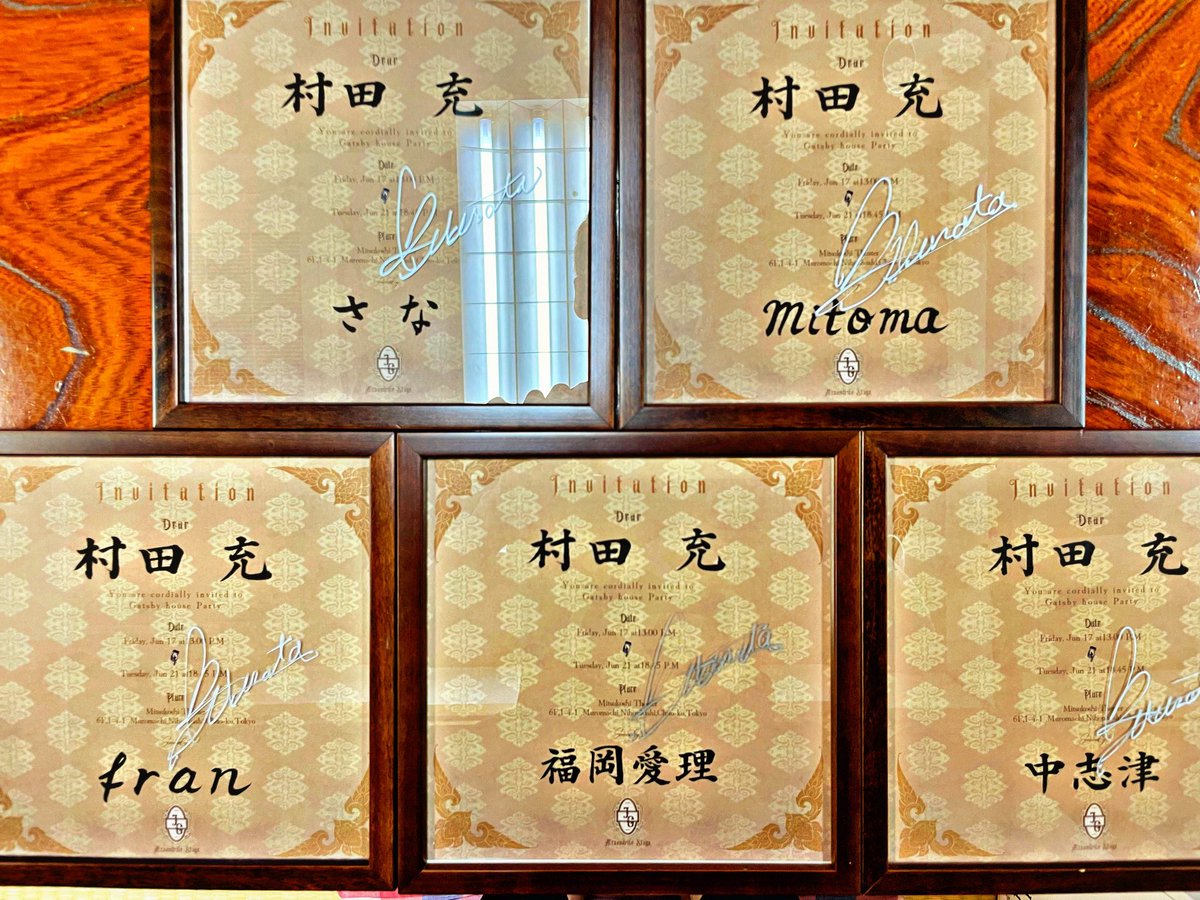 Invitation
Dear
村田 充
You are cordially invited to
Gatsby house Party
Date
Friday, Jun 17 at 13:00 P.M
Tuesday, Jun 21 at 18:45 P
Place
Mitsukoshi
6F,1-4-1, Muromachi,
さな
Invitation
Dear
村田 充
You are cordially invited to
Gatsby house Party
Date
Friday, Jun 17 at 13:00 P.M
Tuesday, Jun 21 at 18:45
Place
Mitsukoshi Theater
6F,1-4-1, Muromachi,
Mitoma
Invitation
Dear
村田 充
You are cordially invited to
Gatsby house Party
Date
Friday, Jun 17 at 3:00 P.M
Tuesday, Jun 21 at 18:45 P.M
Place
Mitsukoshi
6F,1-4-1, Muromachi, Tokyo
fran
Invitation
Dear
村田 充
You are cordially invited to
Gatsby house Party
Date
Friday, Jun 17 at 13:00 P.M
Tuesday, Jun 21 at 18:45 P.M
Place
Mitsukoshi
6F,1-4-1, Muromachi, Chuo-ku,Tokyo
福岡愛理
Invitation
Dear
村田 充
You are cordially invited to
Gatsby house Party
Date
Friday, Jun 17 at 13:00 P.M
Tuesday, Jun 21 at 18:45 P.M
Place
Mitsukoshi
6F,1-4-1, Muromachi,
中志津